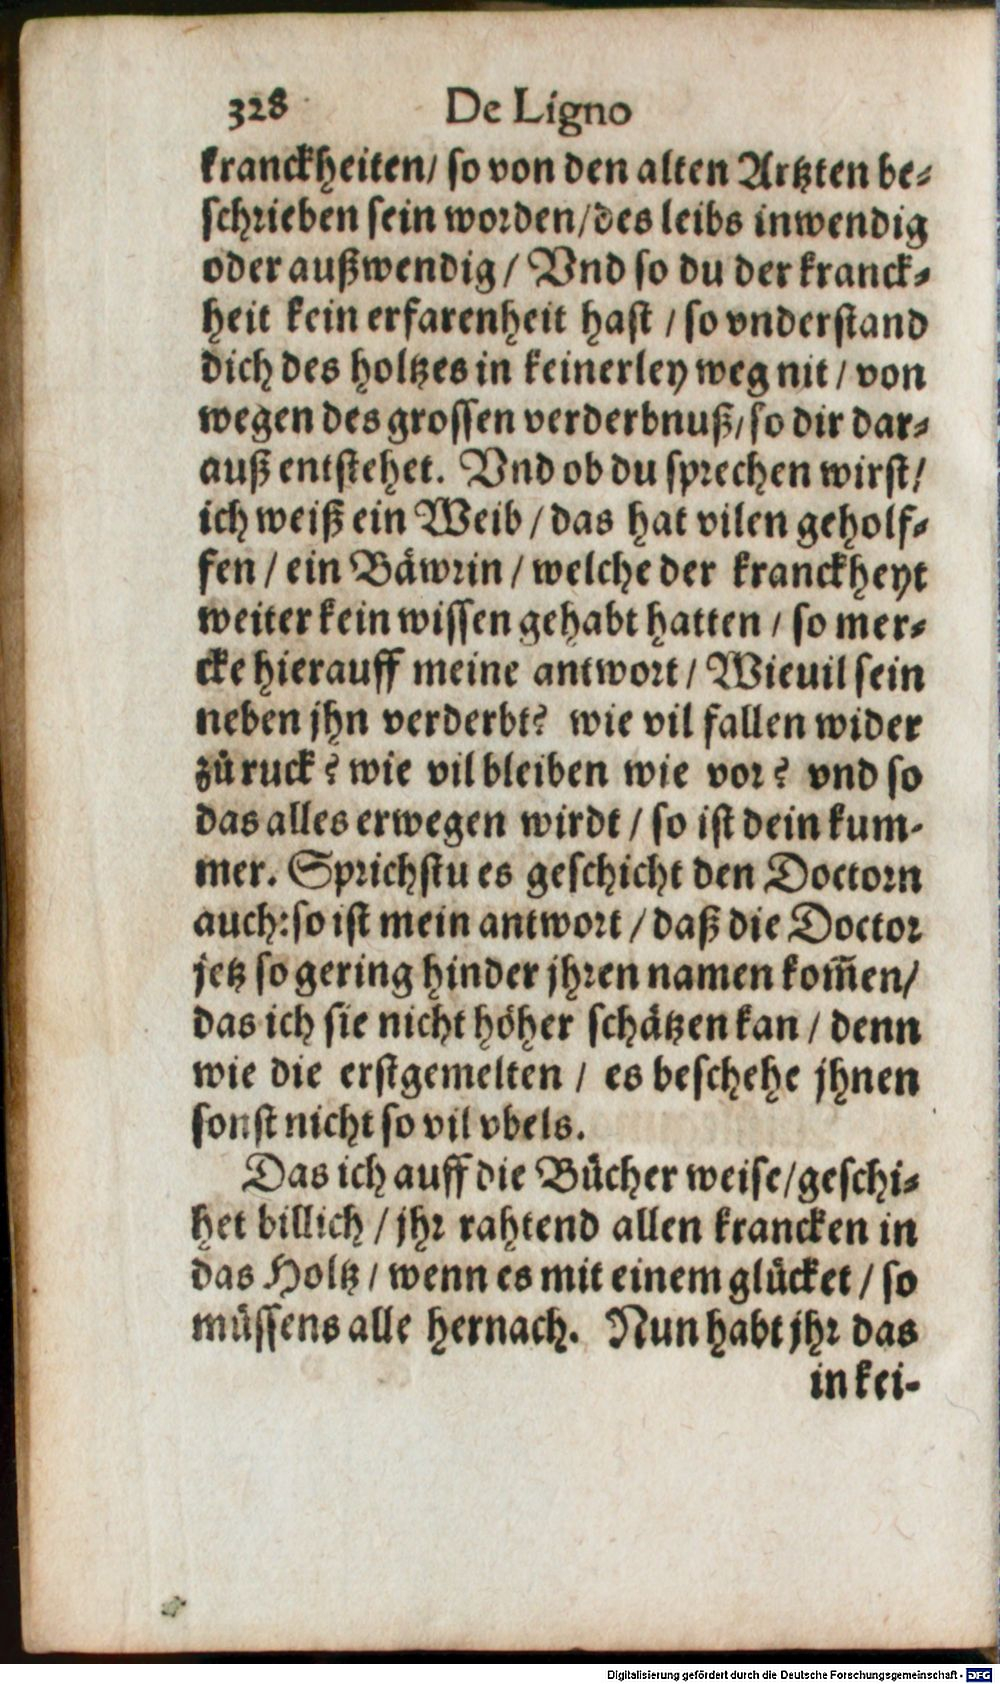 328 De Ligno
kranckheiten/ so von den alten Artzten be-
schrieben sein worden/des leibs inwendig
oder außwendig / Vnd so du der kranck-
heit kein erfarenheit hast / so vnderstand
dich des holtzes in keinerley weg nit / von
wegen des grossen verderbnuß/ so dir dar-
auß entstehet. Vnd ob du sprechen wirst/
ich weiß ein Weib / das hat vilen geholf-
fen / ein Bäwrin / welche der kranckheyt
weiter kein wissen gehabt hatten / so mer-
cke hierauff meine antwort / Wieuil sein
neben jhn verderbt? wie vil fallen wider
zů ruck? wie vil bleiben wie vor? vnd so
das alles erwegen wirdt / so ist dein kum-
mer. Sprichstu es geschicht den Doctorn
auch: so ist mein antwort / daß die Doctor
jetz so gering hinder jhren namen kom̃en/
das ich sie nicht höher schätzen kan / denn
wie die erstgemelten / es beschehe jhnen
sonst nicht so vil vbels.
Das ich auff die Bücher weise/geschi-
het billich / jhr rahtend allen krancken in
das Holtz / wenn es mit einem glücket / so
müssens alle hernach. Nun habt jhr das
in kei-
Digitalisierung gefördert durch die Deutsche Forschungsgemeinschaft - DFG